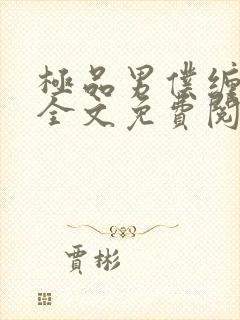 極品男僕纏
全文免費閱
賈彬